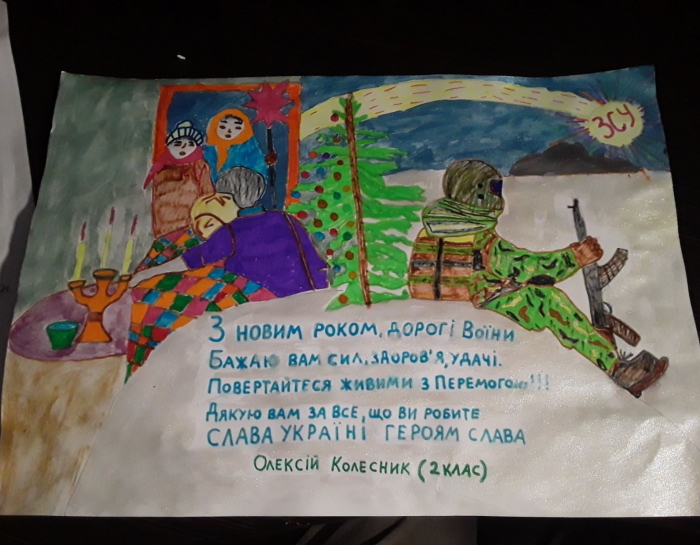 ЗСУ
З новим роком, дорогі Воїни
Бажаю вам сил, здоров'я, удачі.
Повертайтеся живими з Перемогою!!!
Дякую вам за все, що ви робите
СЛАВА УКРАЇНІ ГЕРОЯМ СЛАВА
Олексій Колесник (2 клас)